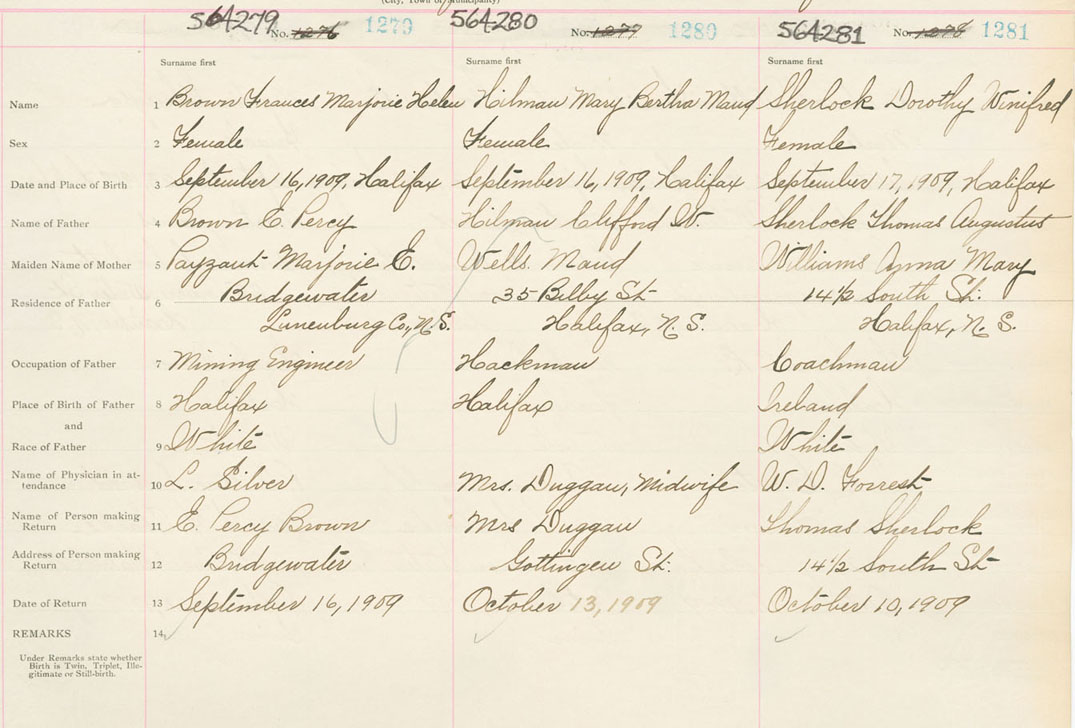 (City, Town or Municipality)
564279 No. 1276 1279 564280 No. 1277 1280 564281 No. 1278 1281
Surname first Surname first Surname first
Name 1 Brown Frances Marjorie Helen Hilman Mary Bertha Maud Sherlock Dorothy Winifred
Sex 2 Female Female Female
Date and Place of Birth 3 September 16, 1909, Halifax September 16, 1909, Halifax September 17, 1909, Halifax
Name of Father 4 Brown E. Percy Hilman Clifford W. Sherlock Thomas Augustus
Maiden Name of Mother 5 Payzant Marjorie E. Wells. Maud Williams Anna Mary
Residence of Father 6 Bridgewater 35 Bilby St 14½ South St:
Lunenburg Co., N.S. Halifax, N.S. Halifax, N.S.
Occupation of Father 7 Mining Engineer Hackman Coachman
Place of Birth of Father 8 Halifax Halifax Ireland
and
Race of Father 9 White White
Name of Physician in at- 10 L. Silver Mrs. Duggan, Midwife W. D. Forrest
tendance
Name of Person making 11 E. Percy Brown Mrs Duggan Thomas Sherlock
Return
Address of Person making 12 Bridgewater Gottingen St: 14½ South St
Return
Date of Return 13 September 16, 1909 October 13, 1909 October 10, 1909
REMARKS 14
Under Remarks state whether
Birth is Twin, Triplet, Ille-
gitimate or Still-birth.